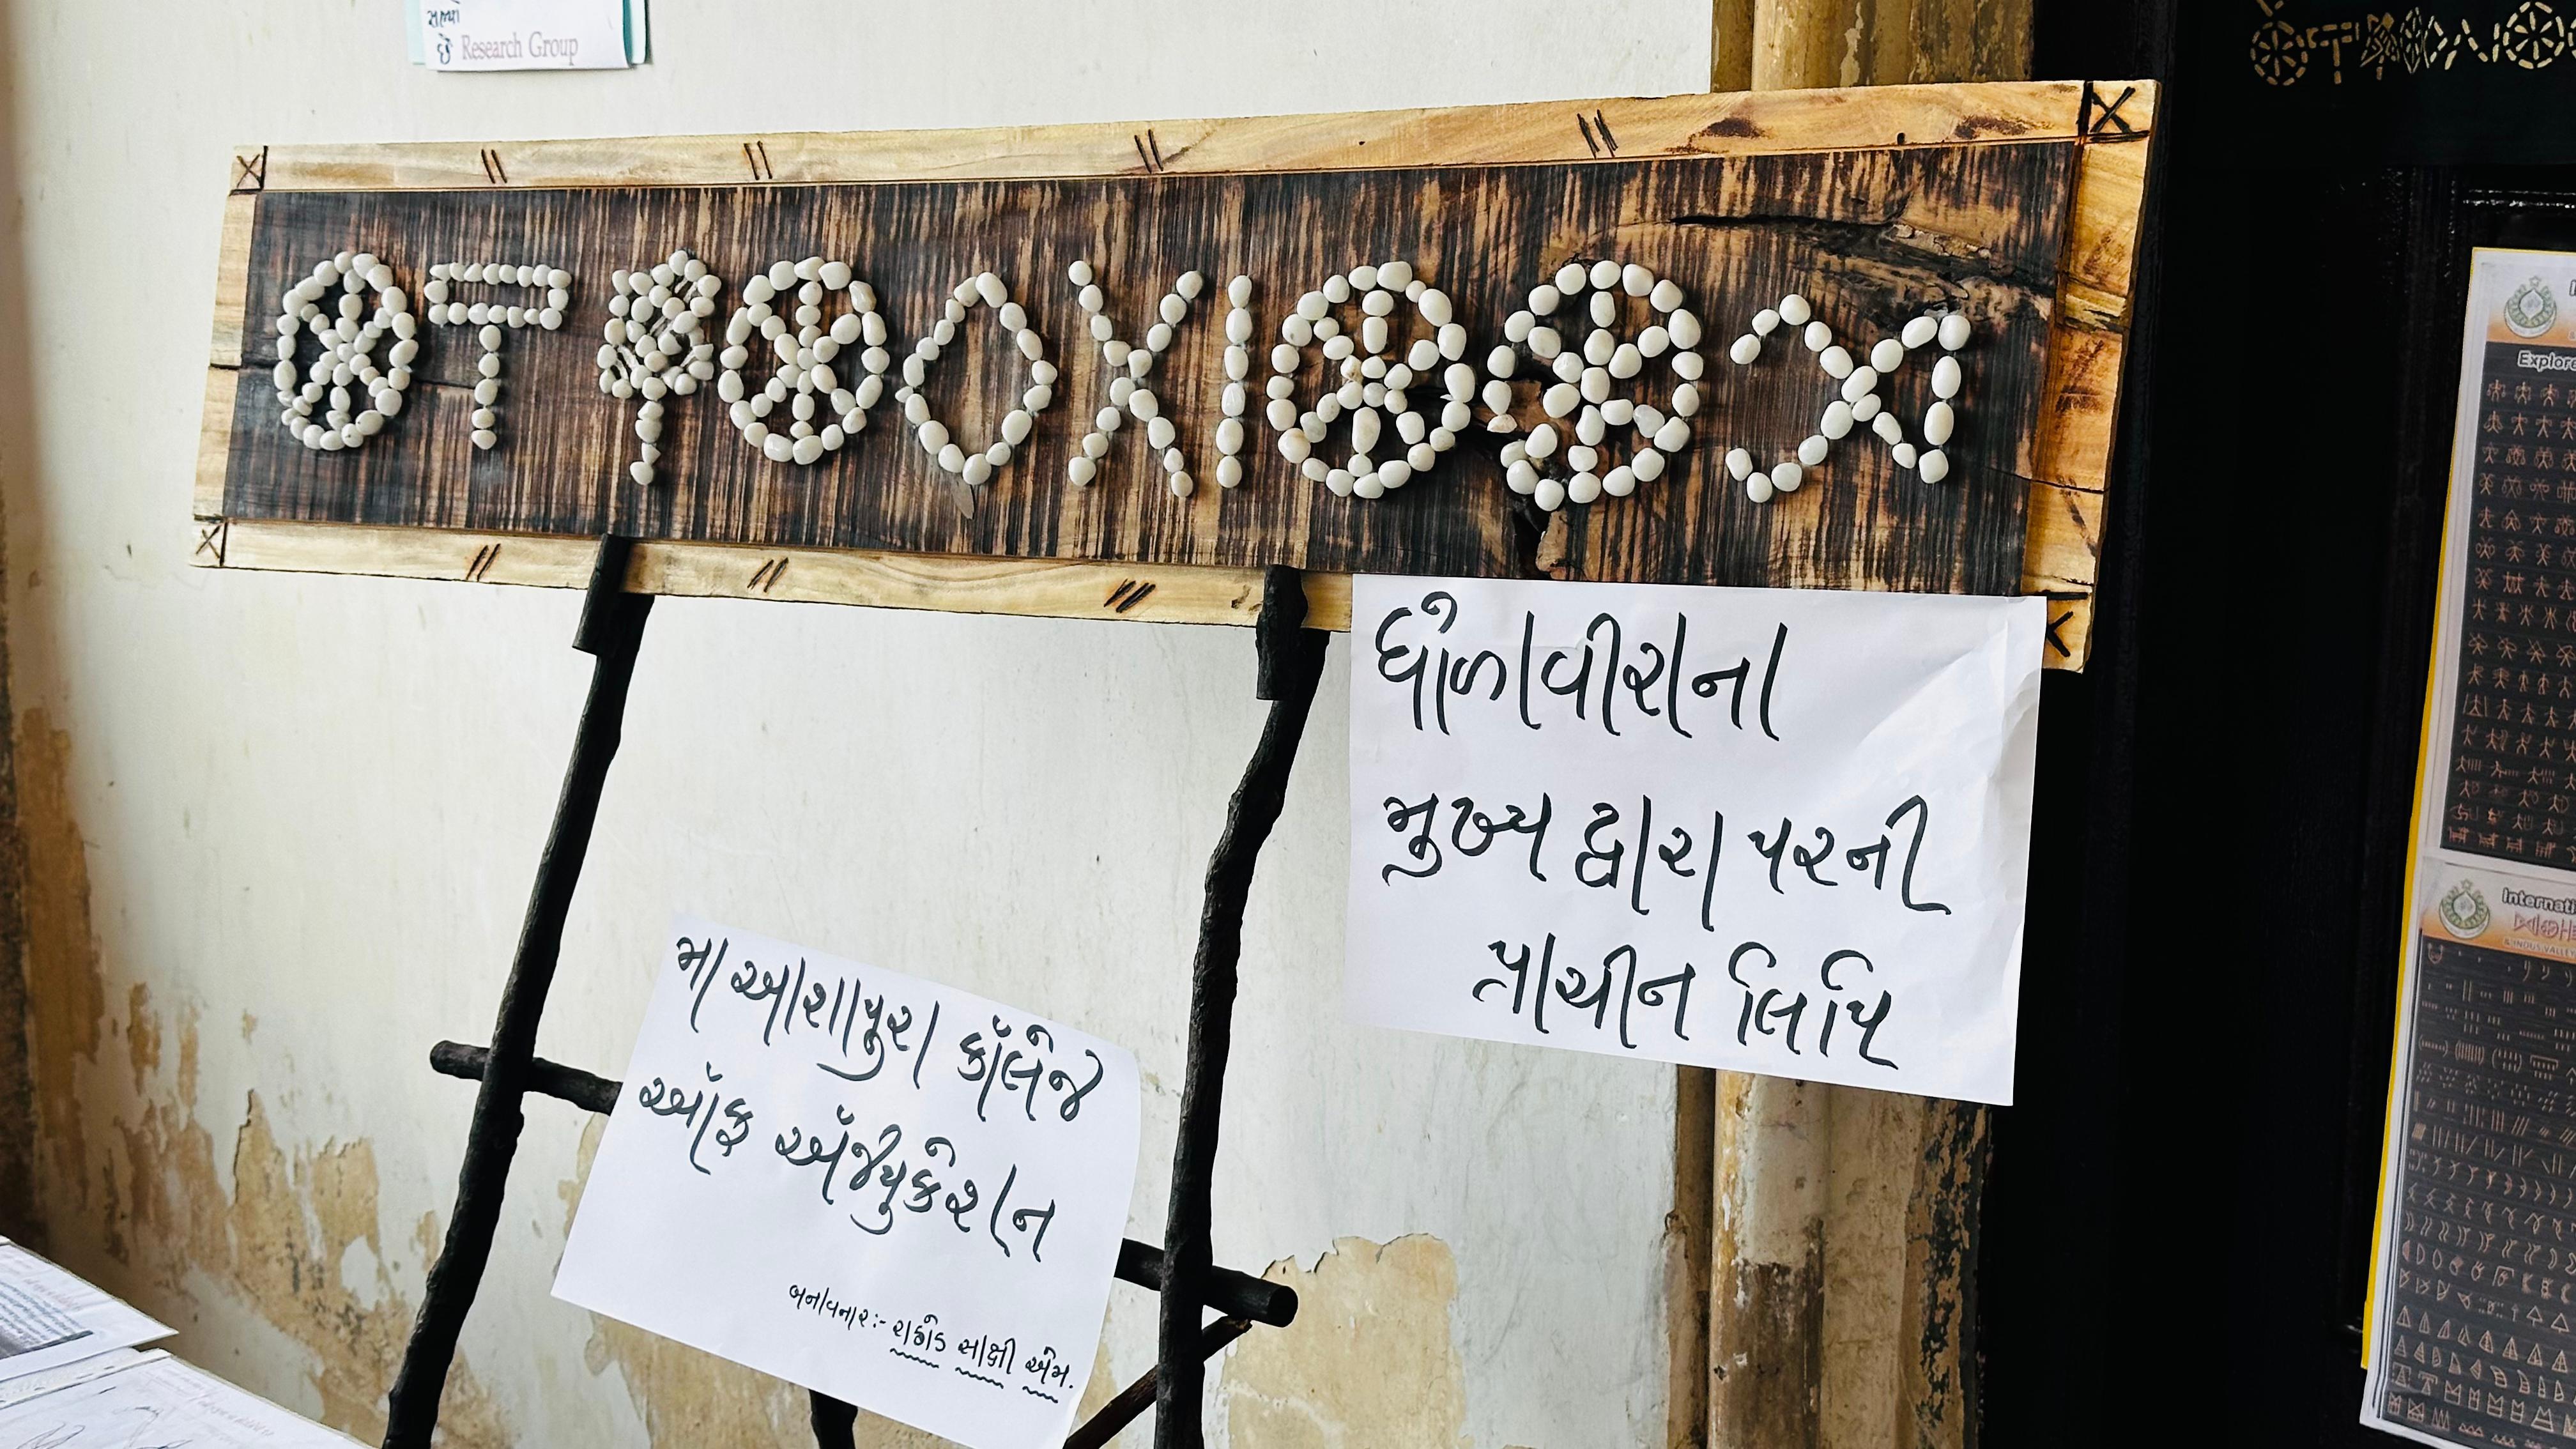 સભ્યો
છે Research Group
ધોળાવીરાના
મુખ્ય દ્વારા પરની
પ્રાચીન લિપિ
મા આશાપુરા કૉલેજ
ઑફ ઍજ્યુકેશન
બનાવનાર:- રાઠોડ સાક્ષી એમ.
Explore
Internati